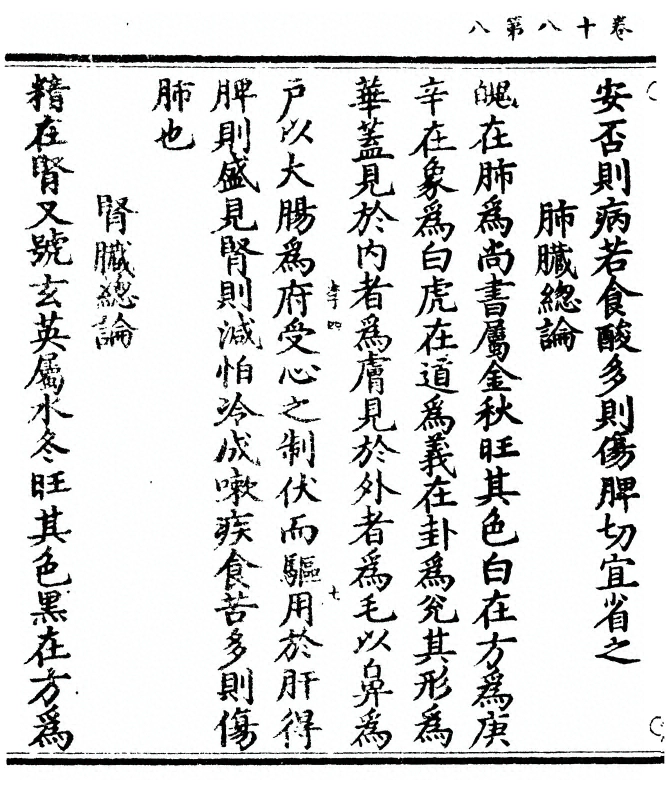 卷十八第八
安否則病若食酸多則傷脾切宜省之
肺臟總論
魄在肺為尚書屬金秋旺其色白在方為庚
辛在象為白虎在道為義在卦為兊其形為
華蓋見於內者為膚見於外者為毛以鼻為
戶以大腸為府受心之制伏而驅用於肝得
脾則盛見腎則減怕冷成嗽疾食苦多則傷
肺也
腎臟總論
精在腎又號玄英屬水冬旺其色黑在方為